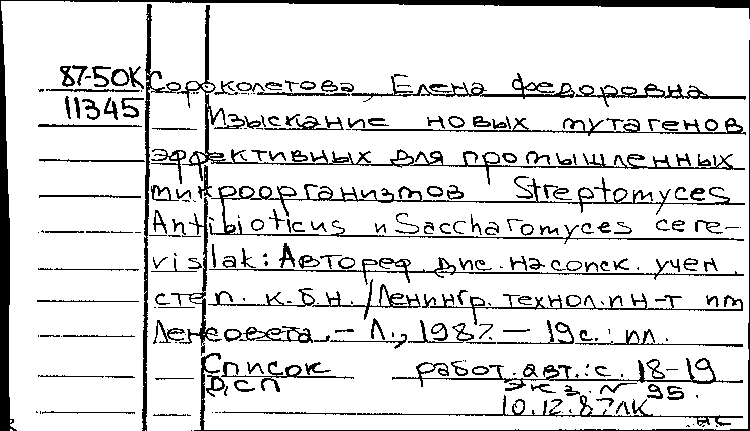 87-50К Сороколетова, Елена Федоровна
11345 Изыскание новых мутагенов
эффективных для промышленных
микроорганизмов Streptomyces
Antibioticus и Saccharomyces cere-
vislak: Автореф. дис. на соиск. учен.
степ. к.б.н. / Ленингр. технол. ин-т им
Ленсовета. - Л., 1987. - 19 с.: ил.
Список работ. авт.: с. 18-19
ДСП экз. N 95.
10.12.87 ЛК
нс